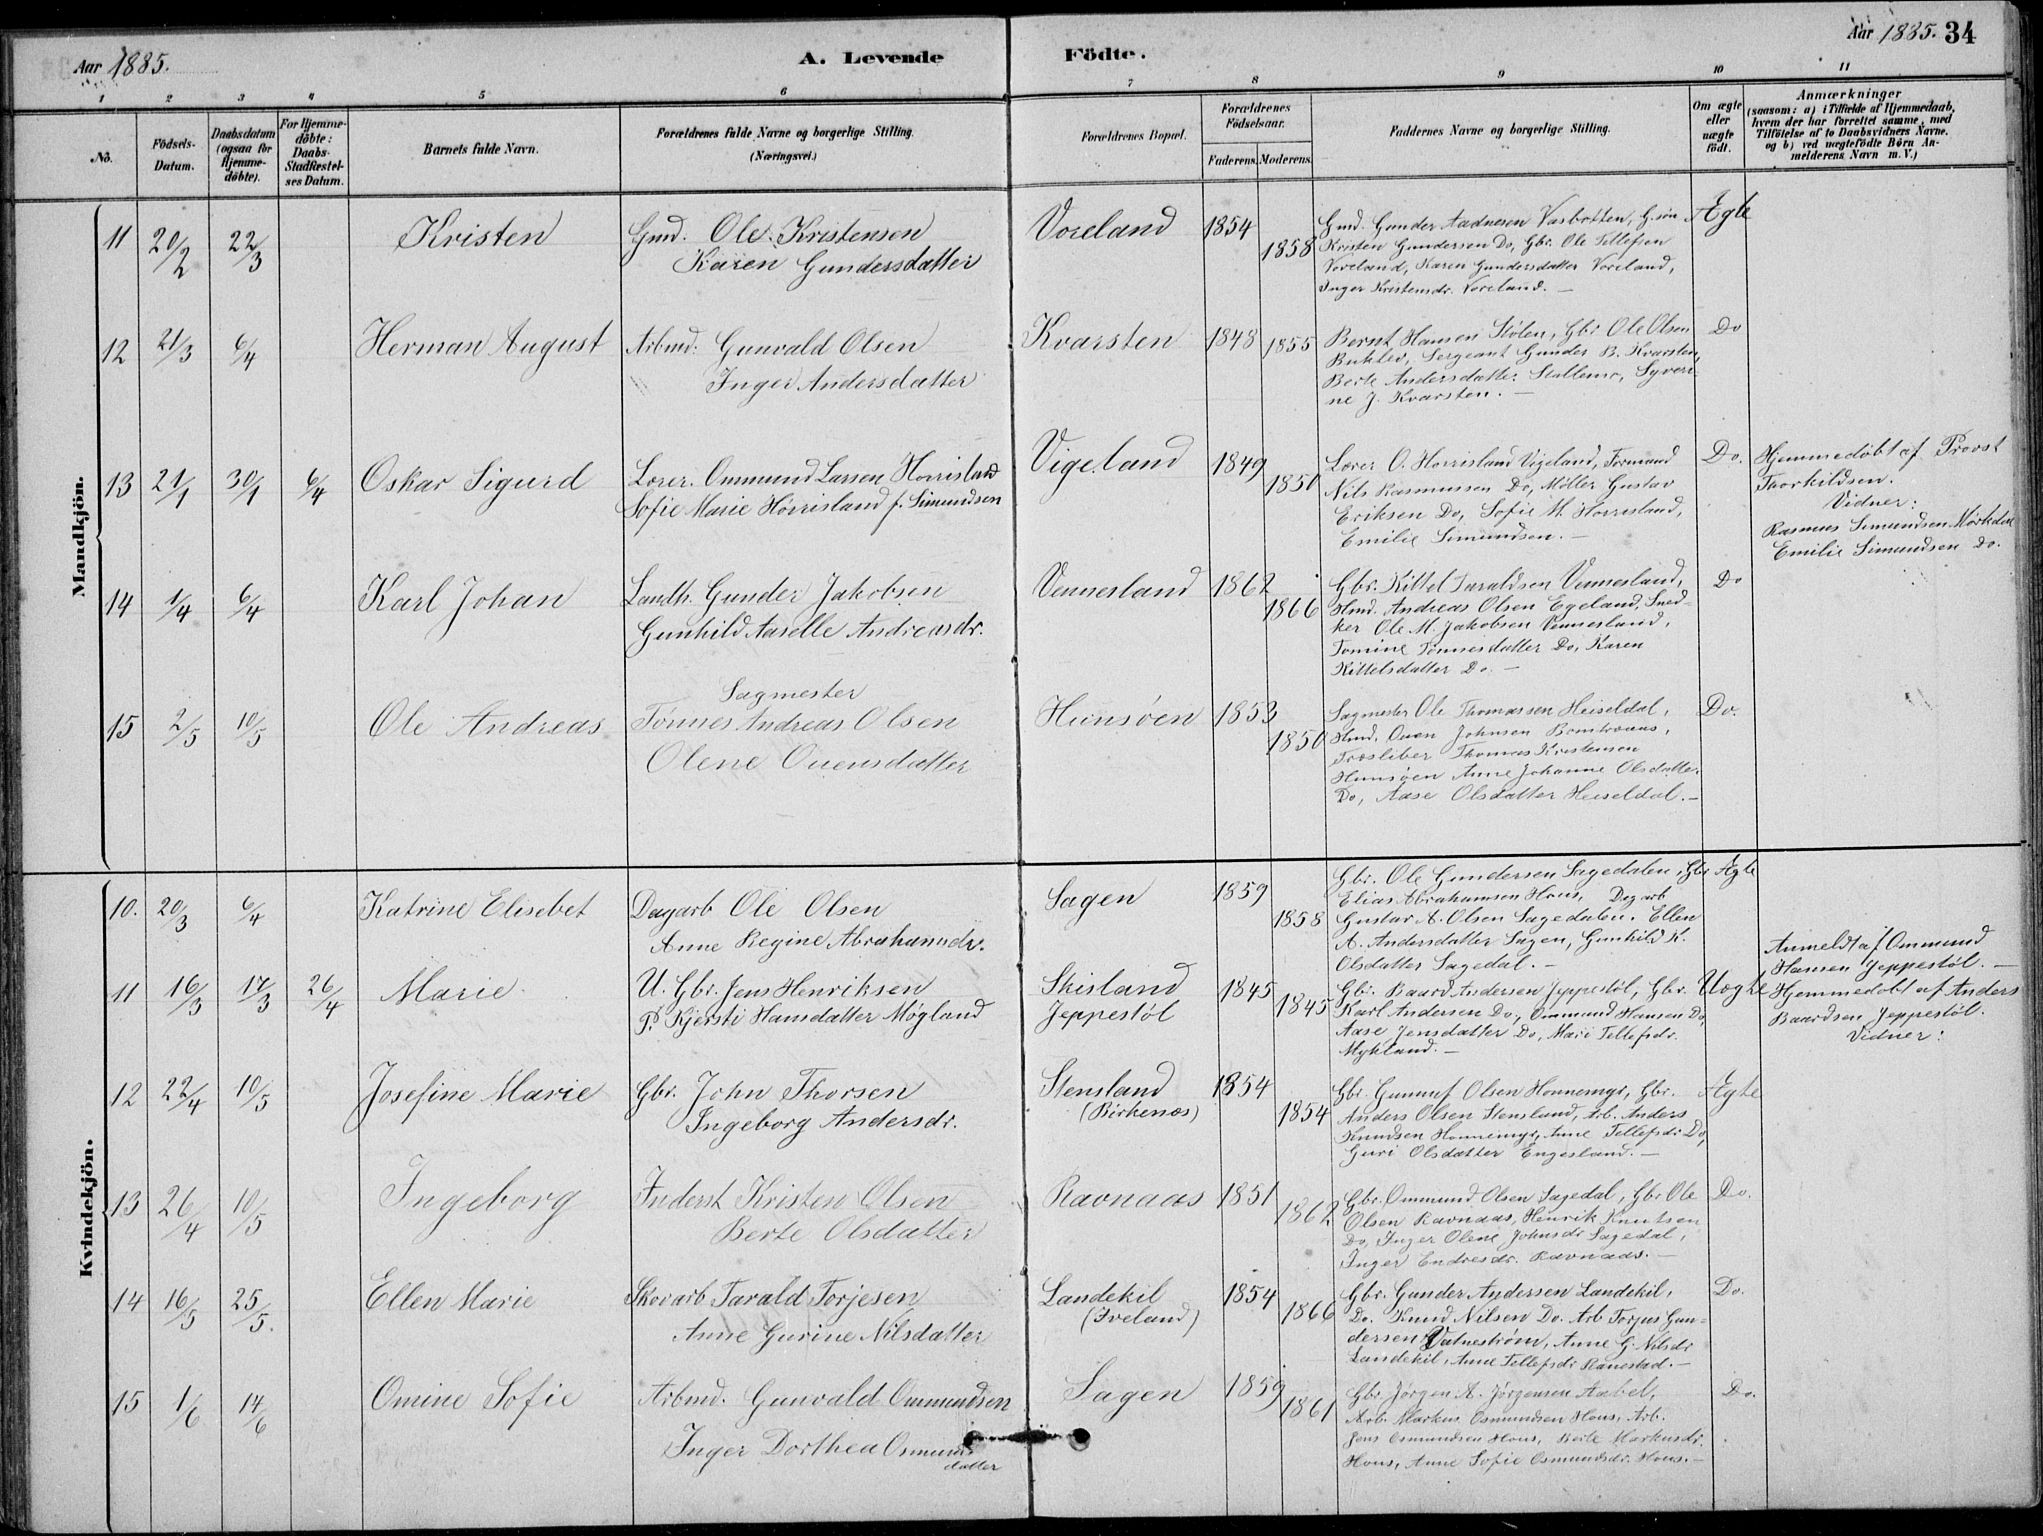 Aar 1885.
A. Levende
Födte.
Aar 1885. 34
1 2 3 4 5 6 7 8 9 10 11
No.
Födsels-
Datum.
Daabsdatum
(ogsaa for
Hjemme-
döbte).
For Hjemme-
döbte:
Daabs-
Stadfæstel-
ses Datum.
Barnets fulde Navn.
Forældrenes fulde Navne og borgerlige Stilling.
(Næringsvei.)
Forældrenes Bopæl.
Forældrenes
Födselsaar.
Faderens. Moderens.
Faddernes Navne og borgerlige Stilling.
Om ægte
eller
uægte
født.
Anmærkninger
(saasom: a) i Tilfælde af Hjemmedaab,
hvem der har forrettet samme, med
Tilföielse af to Daabsvidners Navne.
og b) ved uægtefödte Börn An-
melderens Navn m.V.)
Mandkjön.
11 20/2 22/3 Kristen
Gmd. Ole Kristensen
Karen Gundersdatter
Voreland 1854 1858
Gmd. Gunder Aadnesen Vasbotten, G. søn
Kristen Gundersen Do, Gbr. Ole Tellefsen
Voreland, Karen Gundersdatter Voreland,
Inger Kristensdr. Voreland. —
Ægte
12 21/3 6/4 Herman August
Arbmd. Gunvald Olsen
Inger Andersdatter
Kvarsten 1848 1855
Bernt Hansen Stølen, Gbr Ole Olsen
Buklev, Sergeant Gunder B. Kvarsten,
Berte Andersdatter Stallemo, Syveri-
ne J. Kvarsten. —
Do
13 21/1 30/1 6/4 Oskar Sigurd
Lærer. Ommund Larsen Hørrisland
Sofie Marie Hørrisland f. Simundsen
Vigeland 1849 1850
Lærer O. Hørrisland Vigeland, Formand
Nils Rasmussen Do, Møller Gustav
Eriksen Do, Sofie M. Hørrisland,
Emilie Simundsen. —
Do.
Hjemmedøbt af Provst
Thorkildsen.
Vidner:
Rasmus Simundsen
Emilie Simundsen Do.
14 1/4 6/4 Karl Johan
Landh. Gunder Jakobsen
Gunhild Aaselle Andreasdr.
Vennesland 1862 1866
Gbr. Kittel Taraldsen Vennesland,
Hmd. Andreas Olsen Egeland, Sned-
ker Ole M. Jakobsen Vennesland,
Tomine Tønnesdatter Do, Karen
Kittelsdatter Do. —
Do
15 2/5 10/5 Ole Andreas
Sagmester
Tønnes Andreas Olsen
Olene Ouensdatter
Hunsøen 1853 1850
Sagmester Ole Thomassen Heiseldal,
Hmd. Ouen Johnsen
Træsliber Thomas Kristensen
Hunsøen Anne Johanne Olsdatter
Do, Aase Olsdatter Heiseldal. —
Do.
Kvindekjön.
10. 20/3 6/4 Katrine Elisebet
Dagarb Ole Olsen
Anne Regine Abrahamsdr.
Sagen 1859 1858
Gbr. Ole Gundersen Sagedalen, Gbr
Elias Abrahamsen Hous, Dagarb
Gustav A. Olsen Sagedalen. Ellen
A. Andersdatter Sagen, Gunhild K.
Olsdatter Sagedal. —
Ægte
11 16/3 17/3 26/4 Marie
U. Gbr. Jens Henriksen
P. Kjersti Hansdatter Møgland
Skisland
Jeppestøl
1845 1845
Gbr. Baard Andersen Jeppestøl, Gbr.
Karl Andersen Do, Ommund Hansen Do,
Aase Jensdatter Do, Mari Tellefsdr.
Mykland. —
Uægte
Anmeldt af Ommund
Hansen Jeppestøl. —
Hjemmedøbt af Anders
Baardsen Jeppestøl.
Vidner:
12 22/4 10/5 Josefine Marie
Gbr. John Thorsen
Ingeborg Andersdr.
Stensland
(Birkenæs)
1854 1854
Gbr. Gunnuf Olsen Honnemyr, Gbr.
Anders Olsen Stensland, Arb. Anders
Knudsen Honnemyr, Anne Tellefsdr Do,
Guri Olsdatter Engesland. —
Ægte
13 26/4 10/5 Ingeborg
Inderst Kristen Olsen
Berte Olsdatter
Ravnaas 1851 1862
Gbr. Ommund Olsen Sagedal, Gbr Ole
Olsen Ravnaas, Henrik Knutsen
Do, Inger Olene Johnsdr Sagedal,
Inger Endresdr. Ravnaas. —
Do.
14 16/5 25/5. Ellen Marie
Skovarb Tarald Torjesen
Anne Gurine Nilsdatter
Landekil
(Iveland)
1854 1866
Gbr. Gunder Anderssen Landekil,
Do. Knud Nilsen Do. Arb Torjus Gun-
dersen Vatnestrøm, Anne G. Nilsdr
Landekil, Anne Tellefsdr Ranestad. —
Do.
15 1/6 14/6 Omine Sofie
Arbmd. Gunvald Ommundsen
Inger Dorthea Osmunds
datter
Sagen 1859 1861
Gbr. Jørgen A. Jørgensen Aabel,
Arb. Markus Osmundsen Hous, Arb.
Jens Osmundsen Hous, Berte Markusdr.
Hous, Anne Sofie Osmundsdr. Hous. —
Do.